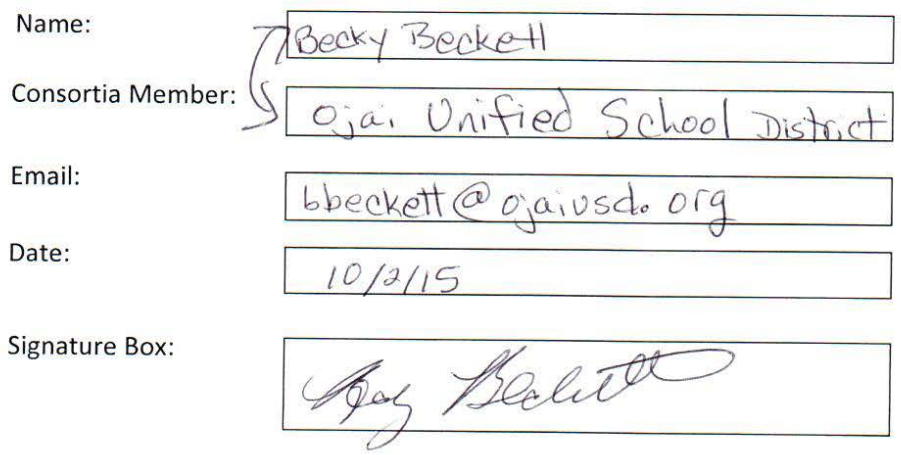 Name: Becky Beckett
Consortia Member: Ojai Unified School District
Email: bbeckett@ojaiusd.org
Date: 10/2/15
Signature Box: Beckett